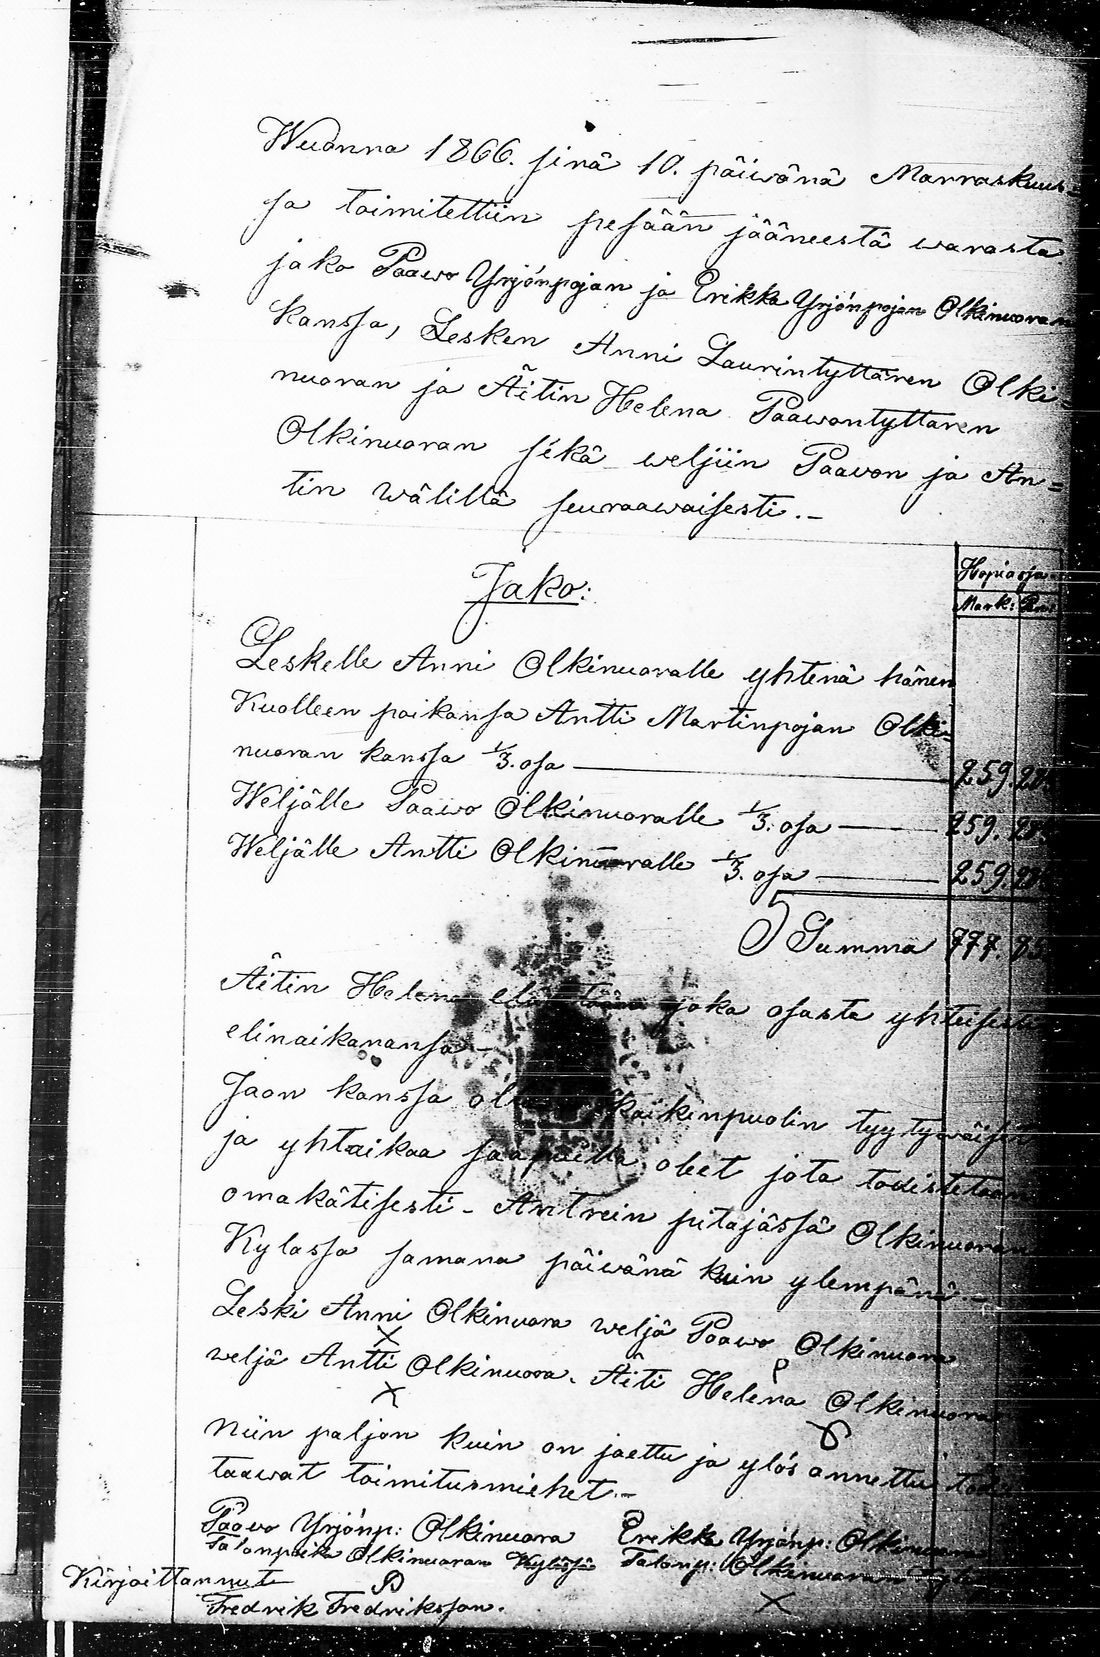 Wuonna 1866. sinä 10. päiwänä Marraskuus=
sa toimitettiin pesään jääneestä warasta
jako Paawo Yrjönpojan ja Erikka Yrjönpojan Olkinuoran
kanssa, Lesken Anni Laurintyttären Olki=
nuoran ja Äitin Helena Paawontyttären
Olkinuoran sekä weljiin Paawon ja An=
tin wälillä seuraawaisesti.—
Jako:
Hopiassa
Mark: Pen:
Leskelle Anni Olkinuoralle yhtenä hänen
Kuolleen poikansa Antti Martinpojan Olki=
nuoran kanssa 1/3. osa — 259.
Weljälle Paawo Olkinuoralle 1/3. osa — 259.
Weljälle Antti Olkinuoralle 1/3. osa — 259.
Summa 777. 85
Äitin Helena joka osasta yhteisesti
elinaikanansa.—
Jaon kanssa kaikinpuolin tyytywäiset
ja yhtaikaa saapuilla olleet jota todistetaan
omakätisesti – Antrein pitäjässä Olkinuoran
Kylassa samana päiwänä kuin ylempänä.—
Leski Anni Olkinuora weljä Paawo Olkinuora
X P
weljä Antti Olkinuora. Äiti Helena Olkinuora
X
Niin paljon kuin on jaettu ja ylös annettu todis
taawat toimitusmiehet.—
Paawo Yrjönp: Olkinuora Erikka Yrjönp: Olkinuora
Talonpoika Olkinuoran Kylässä Talonp: Olkinuoran Kyläs
X
Kirjoittannut
Fredrik Fredriksson.